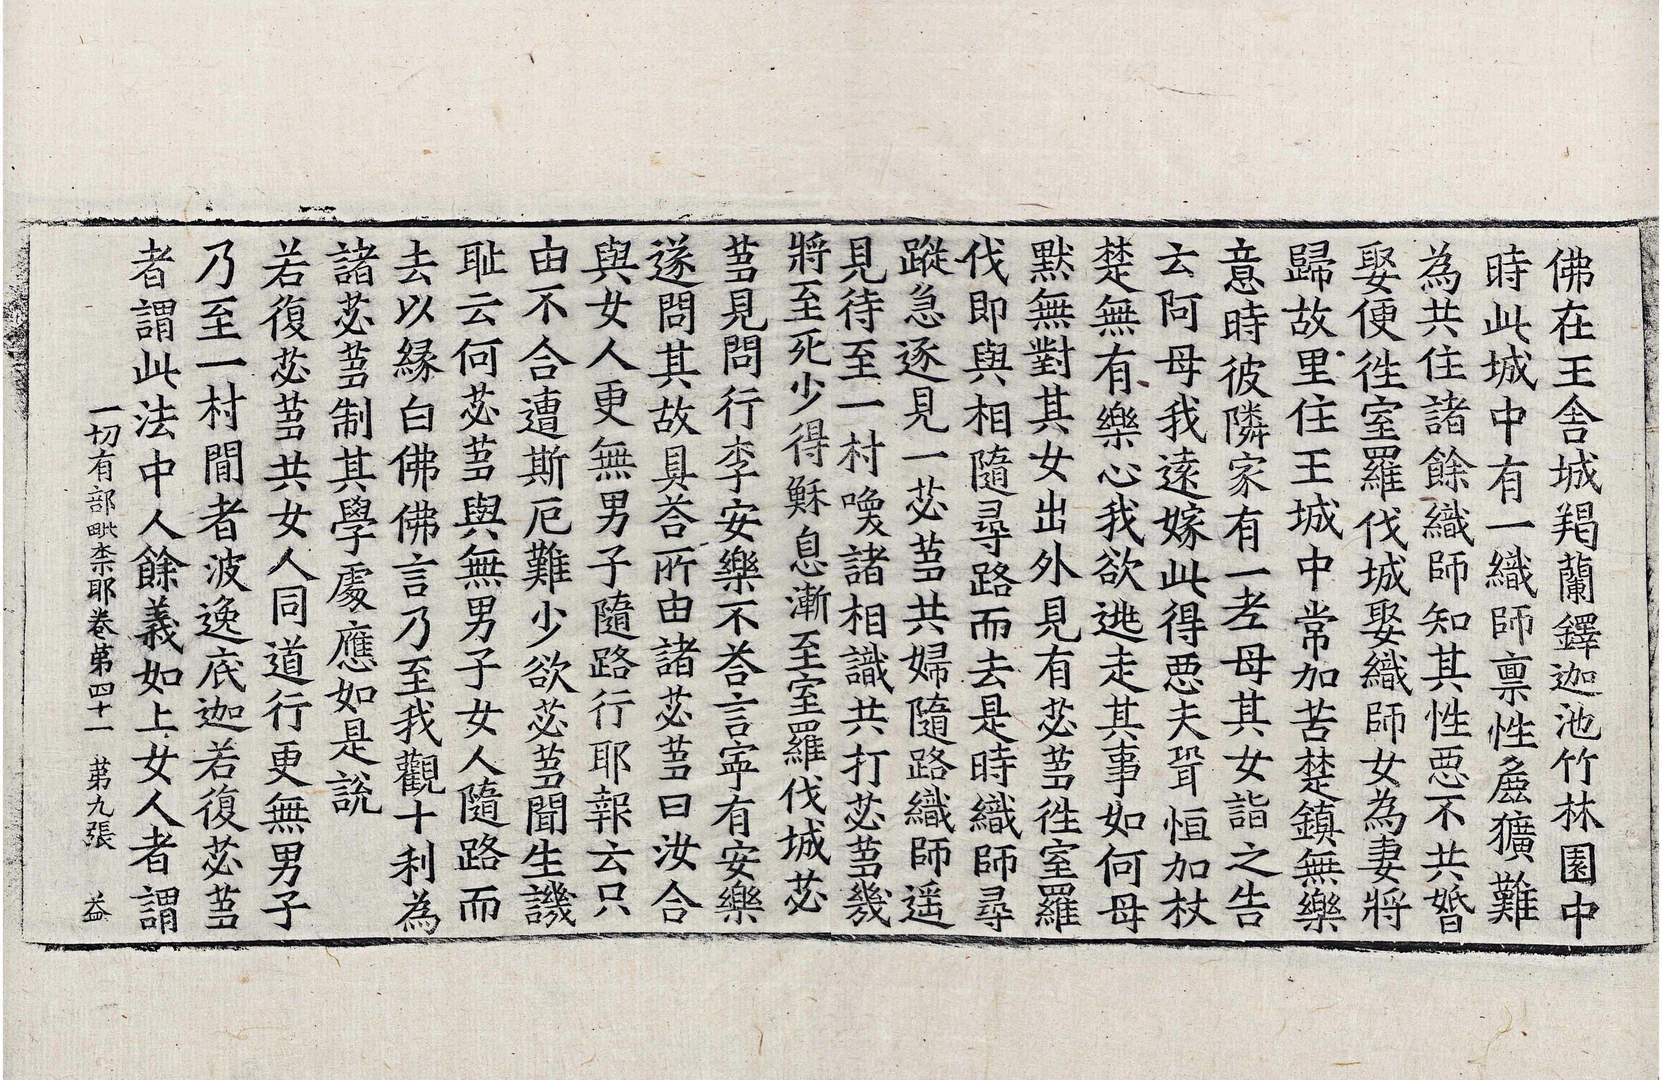 佛在王舍城羯蘭鐸迦池竹林園中
時此城中有一織師禀性麁獷難
為共住諸餘織師知其性悪不共婚
娶便徃室羅伐城娶織師女為妻將
歸故里住王城中常加苦楚鎮無樂
意時彼隣家有一老母其女詣之告
云阿母我遠嫁此得悪夫聟恒加杖
楚無有樂心我欲逃走其事如何母
默無對其女出外見有苾蒭徃室羅
伐即與相隨尋路而去是時織師尋
蹤急逐見一苾蒭共婦隨路織師遥
見待至一村喚諸相識共打苾蒭幾
將至死少得穌息漸至室羅伐城苾
蒭見問行李安樂不荅言寧有安樂
遂問其故具荅所由諸苾蒭曰汝合
與女人更無男子隨路行耶報云只
由不合遭斯厄難少欲苾蒭聞生譏
耻云何苾蒭與無男子女人隨路而
去以縁白佛佛言乃至我觀十利為
諸苾蒭制其學處應如是說
若復苾蒭共女人同道行更無男子
乃至一村閒者波逸底迦若復苾蒭
者謂此法中人餘義如上女人者謂
一切有部毗柰耶卷第四十一 第九張 益